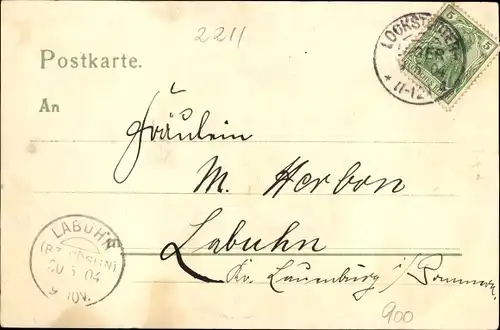 2211
5 5
LOCKSTEDTER
LAGER
04
* 11-12
Postkarte.
An
Fräulein
M. Herbon
Labuhn
Kr. Lauenburg i/Pommern.
LABUHN
(BZ. CÖSLIN)
20 5 04
9-10V.
900